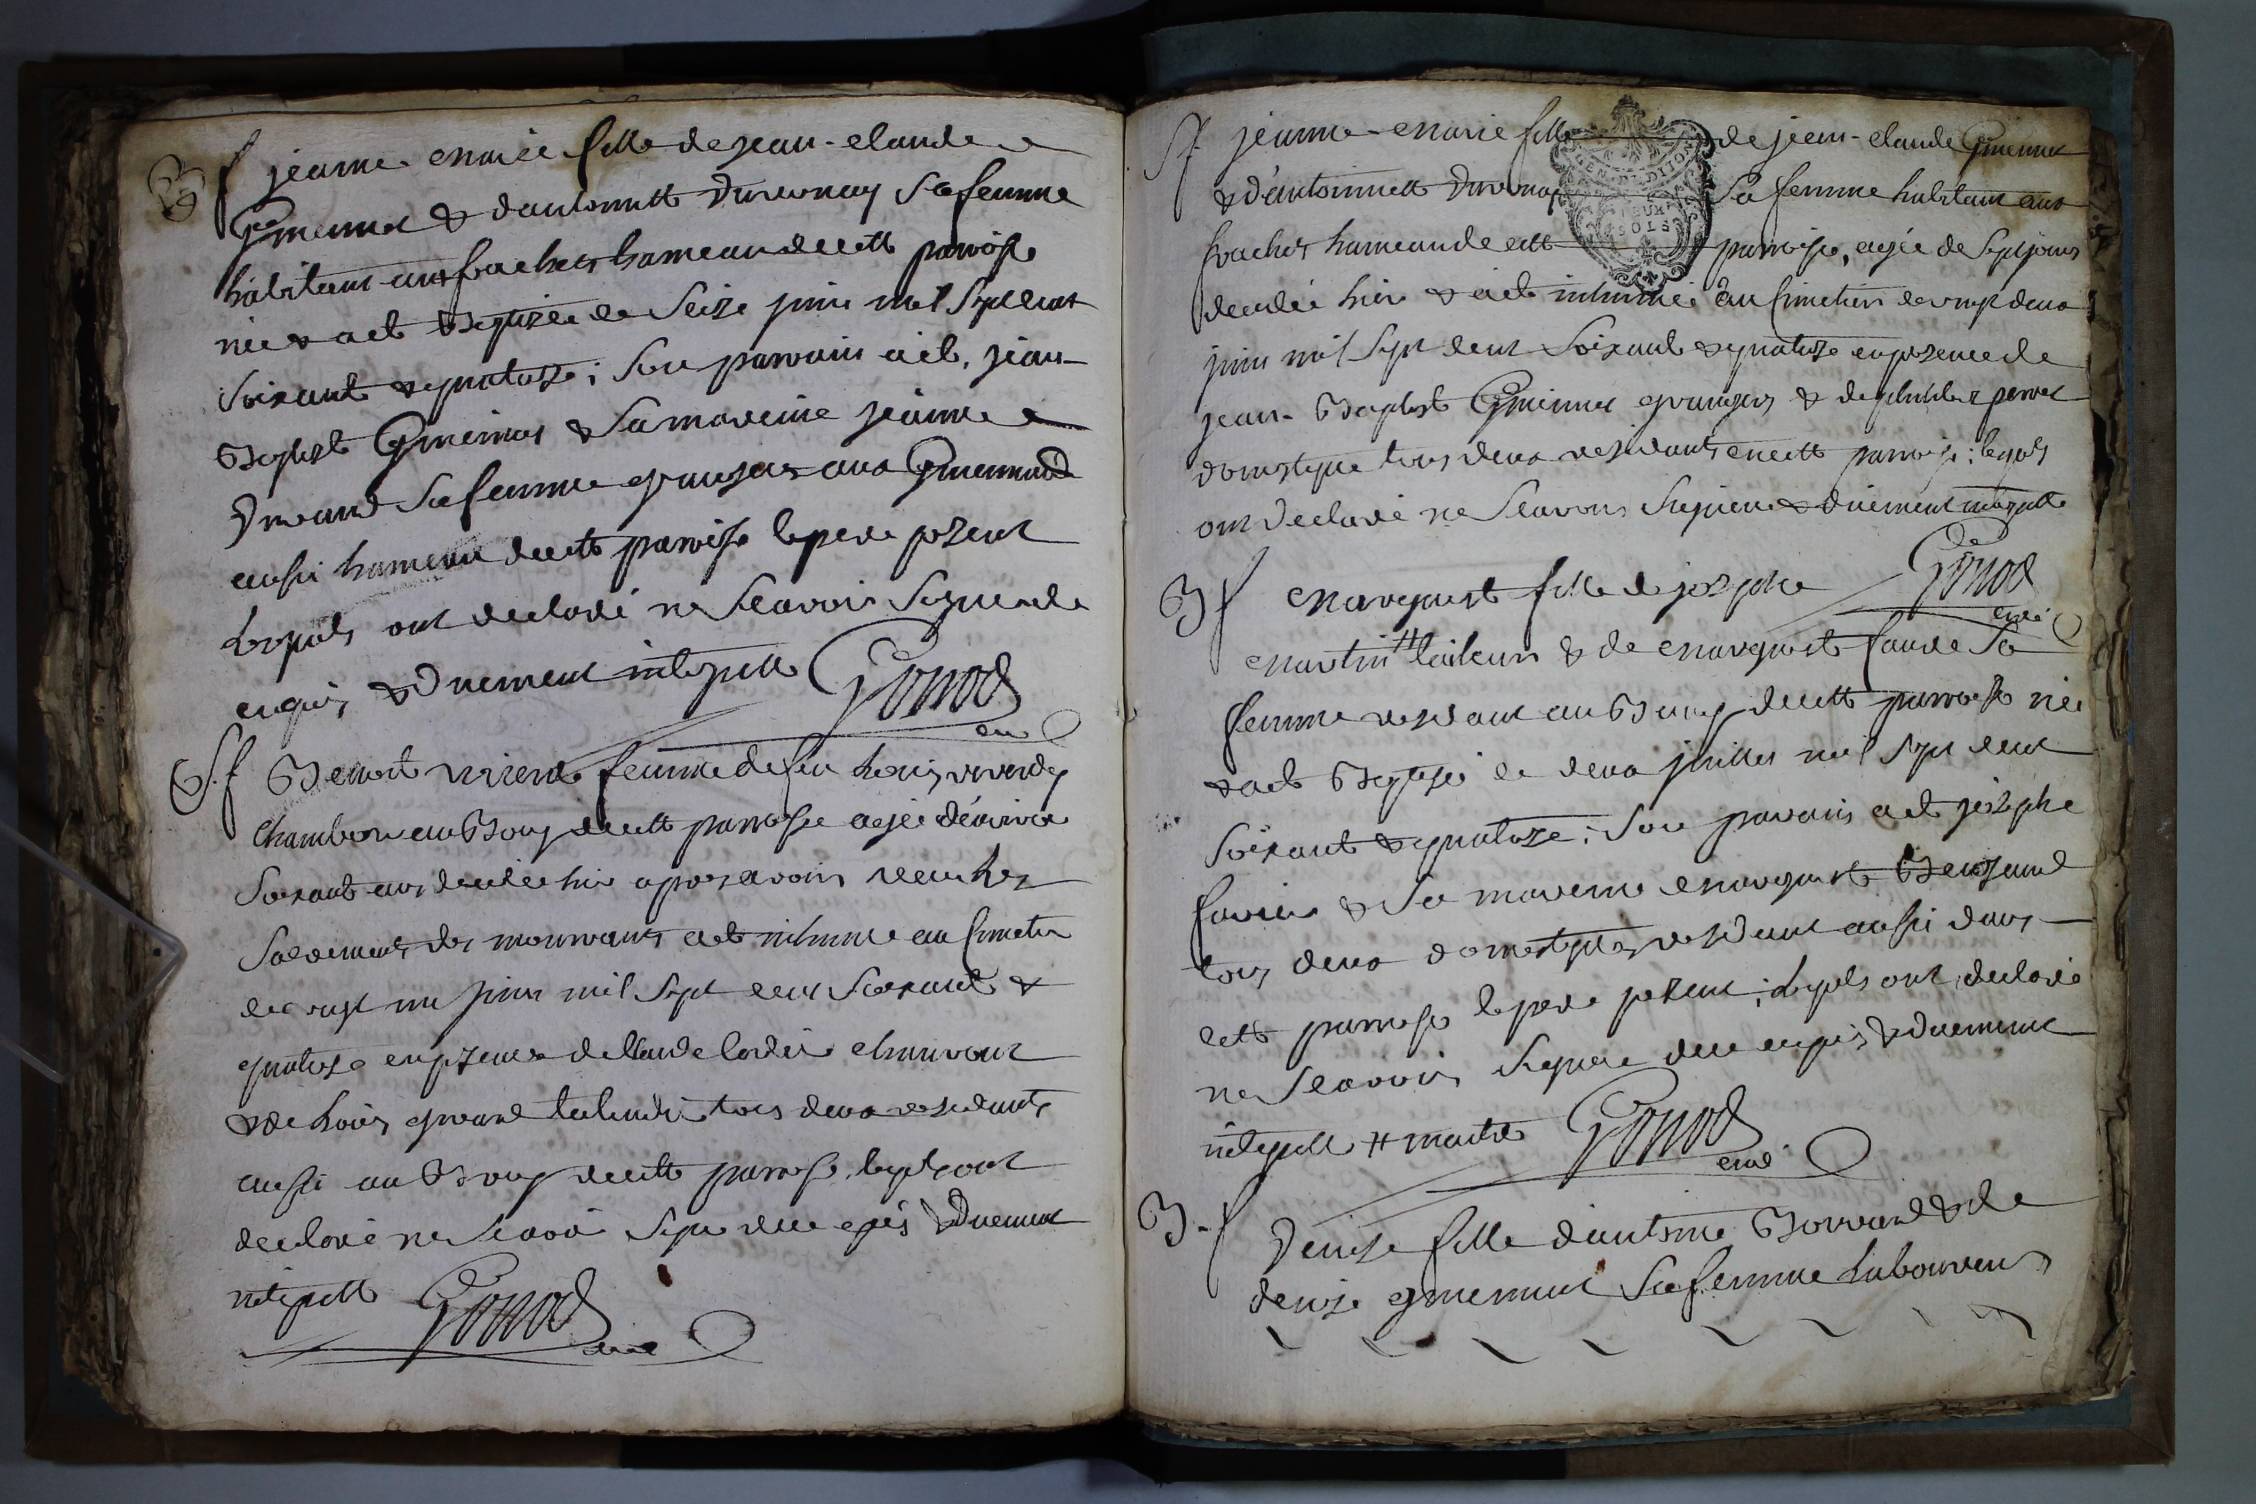 B f jeanne marie fille de jean-claude
Guennet & d'antoinette Duvernay sa femme
habitant aux frachets hameau de cette paroisse
née & a été Baptizée le seize juin mil sept cent
soixante & quatorze ; son parrain a été jean
Baptiste & sa maraine jeanne
Durand sa femme grangers aux
aussi hameau de cette paroisse le pere présent
lesquels ont declaré ne scavoir signer de ce
enquis & Duement interpellé Gonod
curé
S. f Benoite femme de feu louis
Chambon au Bourg de cette paroisse agée d'environ
soixante ans decedée hier apres avoir receu les
sacrements des mourants a été inhumée au cimetiere
le vingt un juin mil sept cent soixante &
quatorze en présence de Claude
& de louis tous deux residants
aussi au Bourg de cette paroisse lesquels ont
declaré ne scavoir signer de ce enquis & Duement
interpellé Gonod
curé
S f jeanne-marie fille de jean-claude Guennet
& d'antoinette Duvernay sa femme habitant aux
frachets hameau de cette paroisse, agée de sept jours
decedée hier & a été inhumée au cimetiere le vingt deux
juin mil sept cent soixante & quatorze en présence de
jean-Baptiste granger & de
domestique tous deux residants en cette paroisse ; lesquels
ont declaré ne scavoir signer & duement interpellé
Gonod
curé
GEN. DE DIJON
DEUX
SOLS
B f marguerite fille de joseph
martin # tailleur & de marguerite faure sa
femme residant au Bourg de cette paroisse née
& a été Baptisée le deux juillet mil sept cent
soixante & quatorze ; son parain a été joseph
& sa maraine marguerite
tous deux domestiques residant aussi dans
cette paroisse le pere présent ; lesquels ont declaré
ne scavoir signer de ce enquis & duement
interpellé # maitre Gonod
curé
B. f Denise fille d'antoine & de
denise sa femme laboureurs